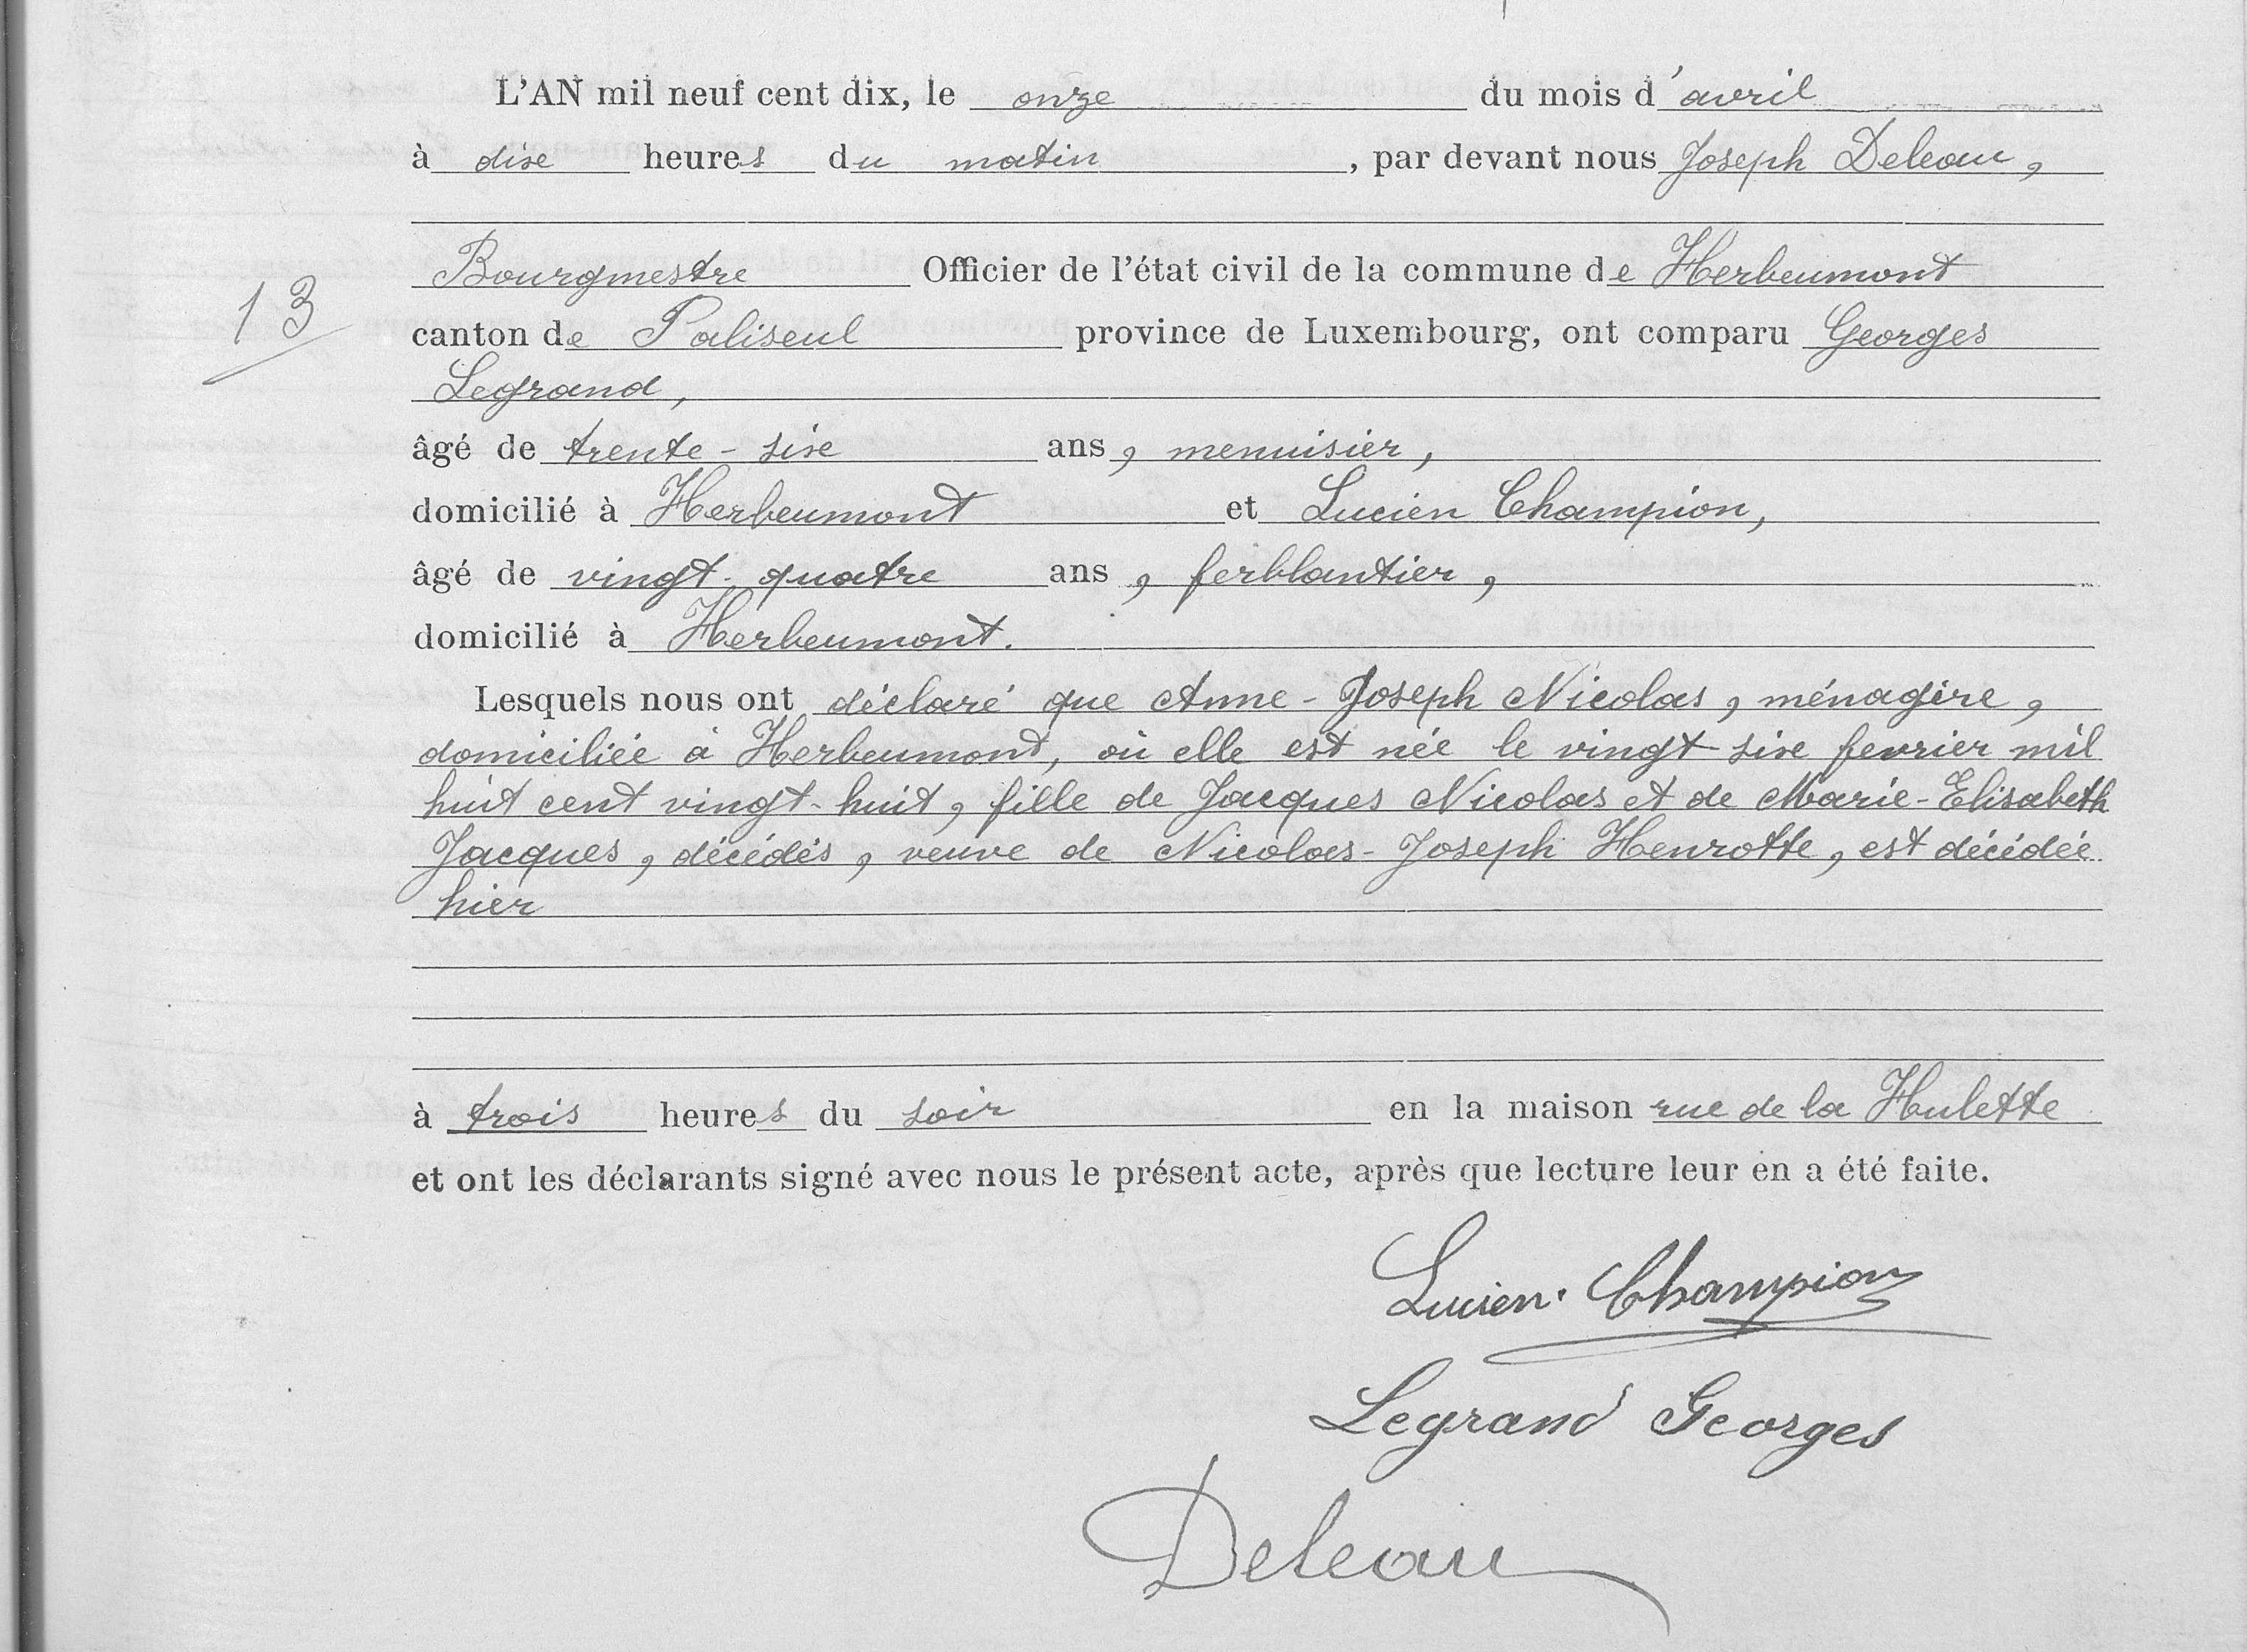 L'AN mil neuf cent dix, le onze du mois d'avril
à dix heures du matin, par devant nous Joseph Deleau,
Bourgmestre Officier de l'état civil de la commune de Herbeumont
13
canton de Paliseul province de Luxembourg, ont comparu Georges
Legrand,
âgé de trente-six ans, menuisier,
domicilié à Herbeumont et Lucien Champion,
âgé de vingt-quatre ans, ferblantier,
domicilié à Herbeumont.
Lesquels nous ont déclaré que Anne-Joseph Nicolas, ménagère,
domiciliée à Herbeumont, où elle est née le vingt-six fevrier mil
huit cent vingt-huit, fille de Jacques Nicolas et de Marie-Elisabeth
Jacques, décédés, veuve de Nicolas-Joseph Henrotte, est décédée
hier
à trois heures du soir en la maison rue de la Hulette
et ont les déclarants signé avec nous le présent acte, après que lecture leur en a été faite.
Lucien Champion
Legrand Georges
Deleau